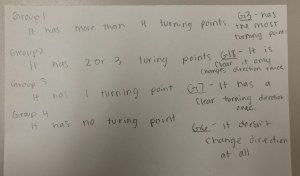 Group 1
It has more than 4 turning points
G3 - has
the most
turning points
Group 2
It has 2 or 3 turing points
G18 - It is
clear it only
changes direction
Group 3
It has 1 turning point
G7 - It has a
clear turning direction
once
Group 4
It has no turing point
G6 - It doesn't
change direction
at all